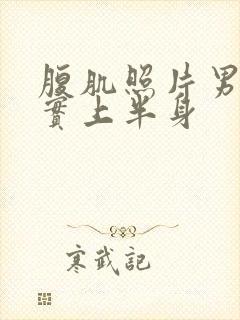 腹肌照片男
實上半身
寒武記